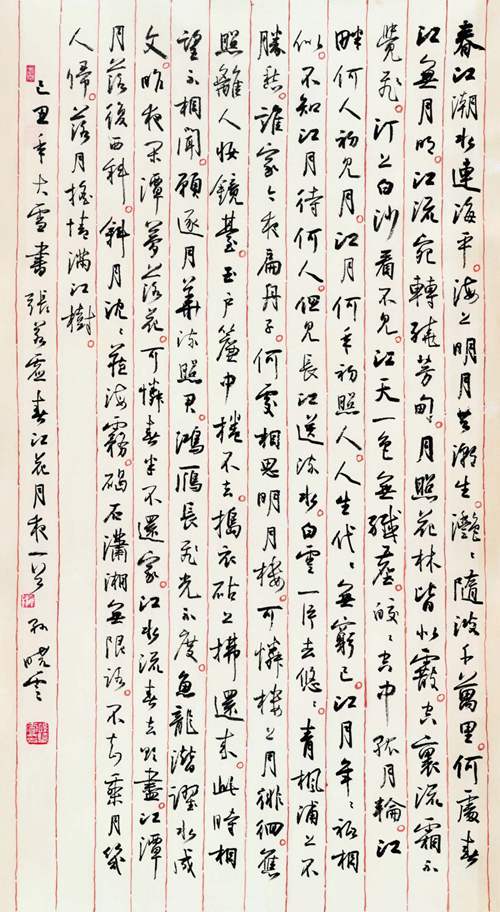 春江潮水連海平。海上明月共潮生。灩々隨波千萬里。何處春
江無月明。江流宛轉繞芳甸。月照花林皆似霰。空裏流霜不
覺飛。汀上白沙看不見。江天一色無纖塵。皎々空中孤月輪。江
畔何人初見月。江月何年初照人。人生代々無窮已。江月年々祇相
似。不知江月待何人。但見長江送流水。白雲一片去悠々。青楓浦上不
勝愁。誰家今夜扁舟子。何處相思明月樓。可憐樓上月徘徊。應
照離人妝鏡臺。玉戶簾中捲不去。搗衣砧上拂還來。此時相
望不相聞。願逐月華流照君。鴻雁長飛光不度。魚龍潛躍水成
文。昨夜閑潭夢落花。可憐春半不還家。江水流春去欲盡。江潭
月落復西斜。斜月沈々藏海霧。碣石瀟湘無限路。不知乘月幾
人歸。落月搖情滿江樹。
己丑年大雪書張若虛春江花月夜一首 孫曉雲